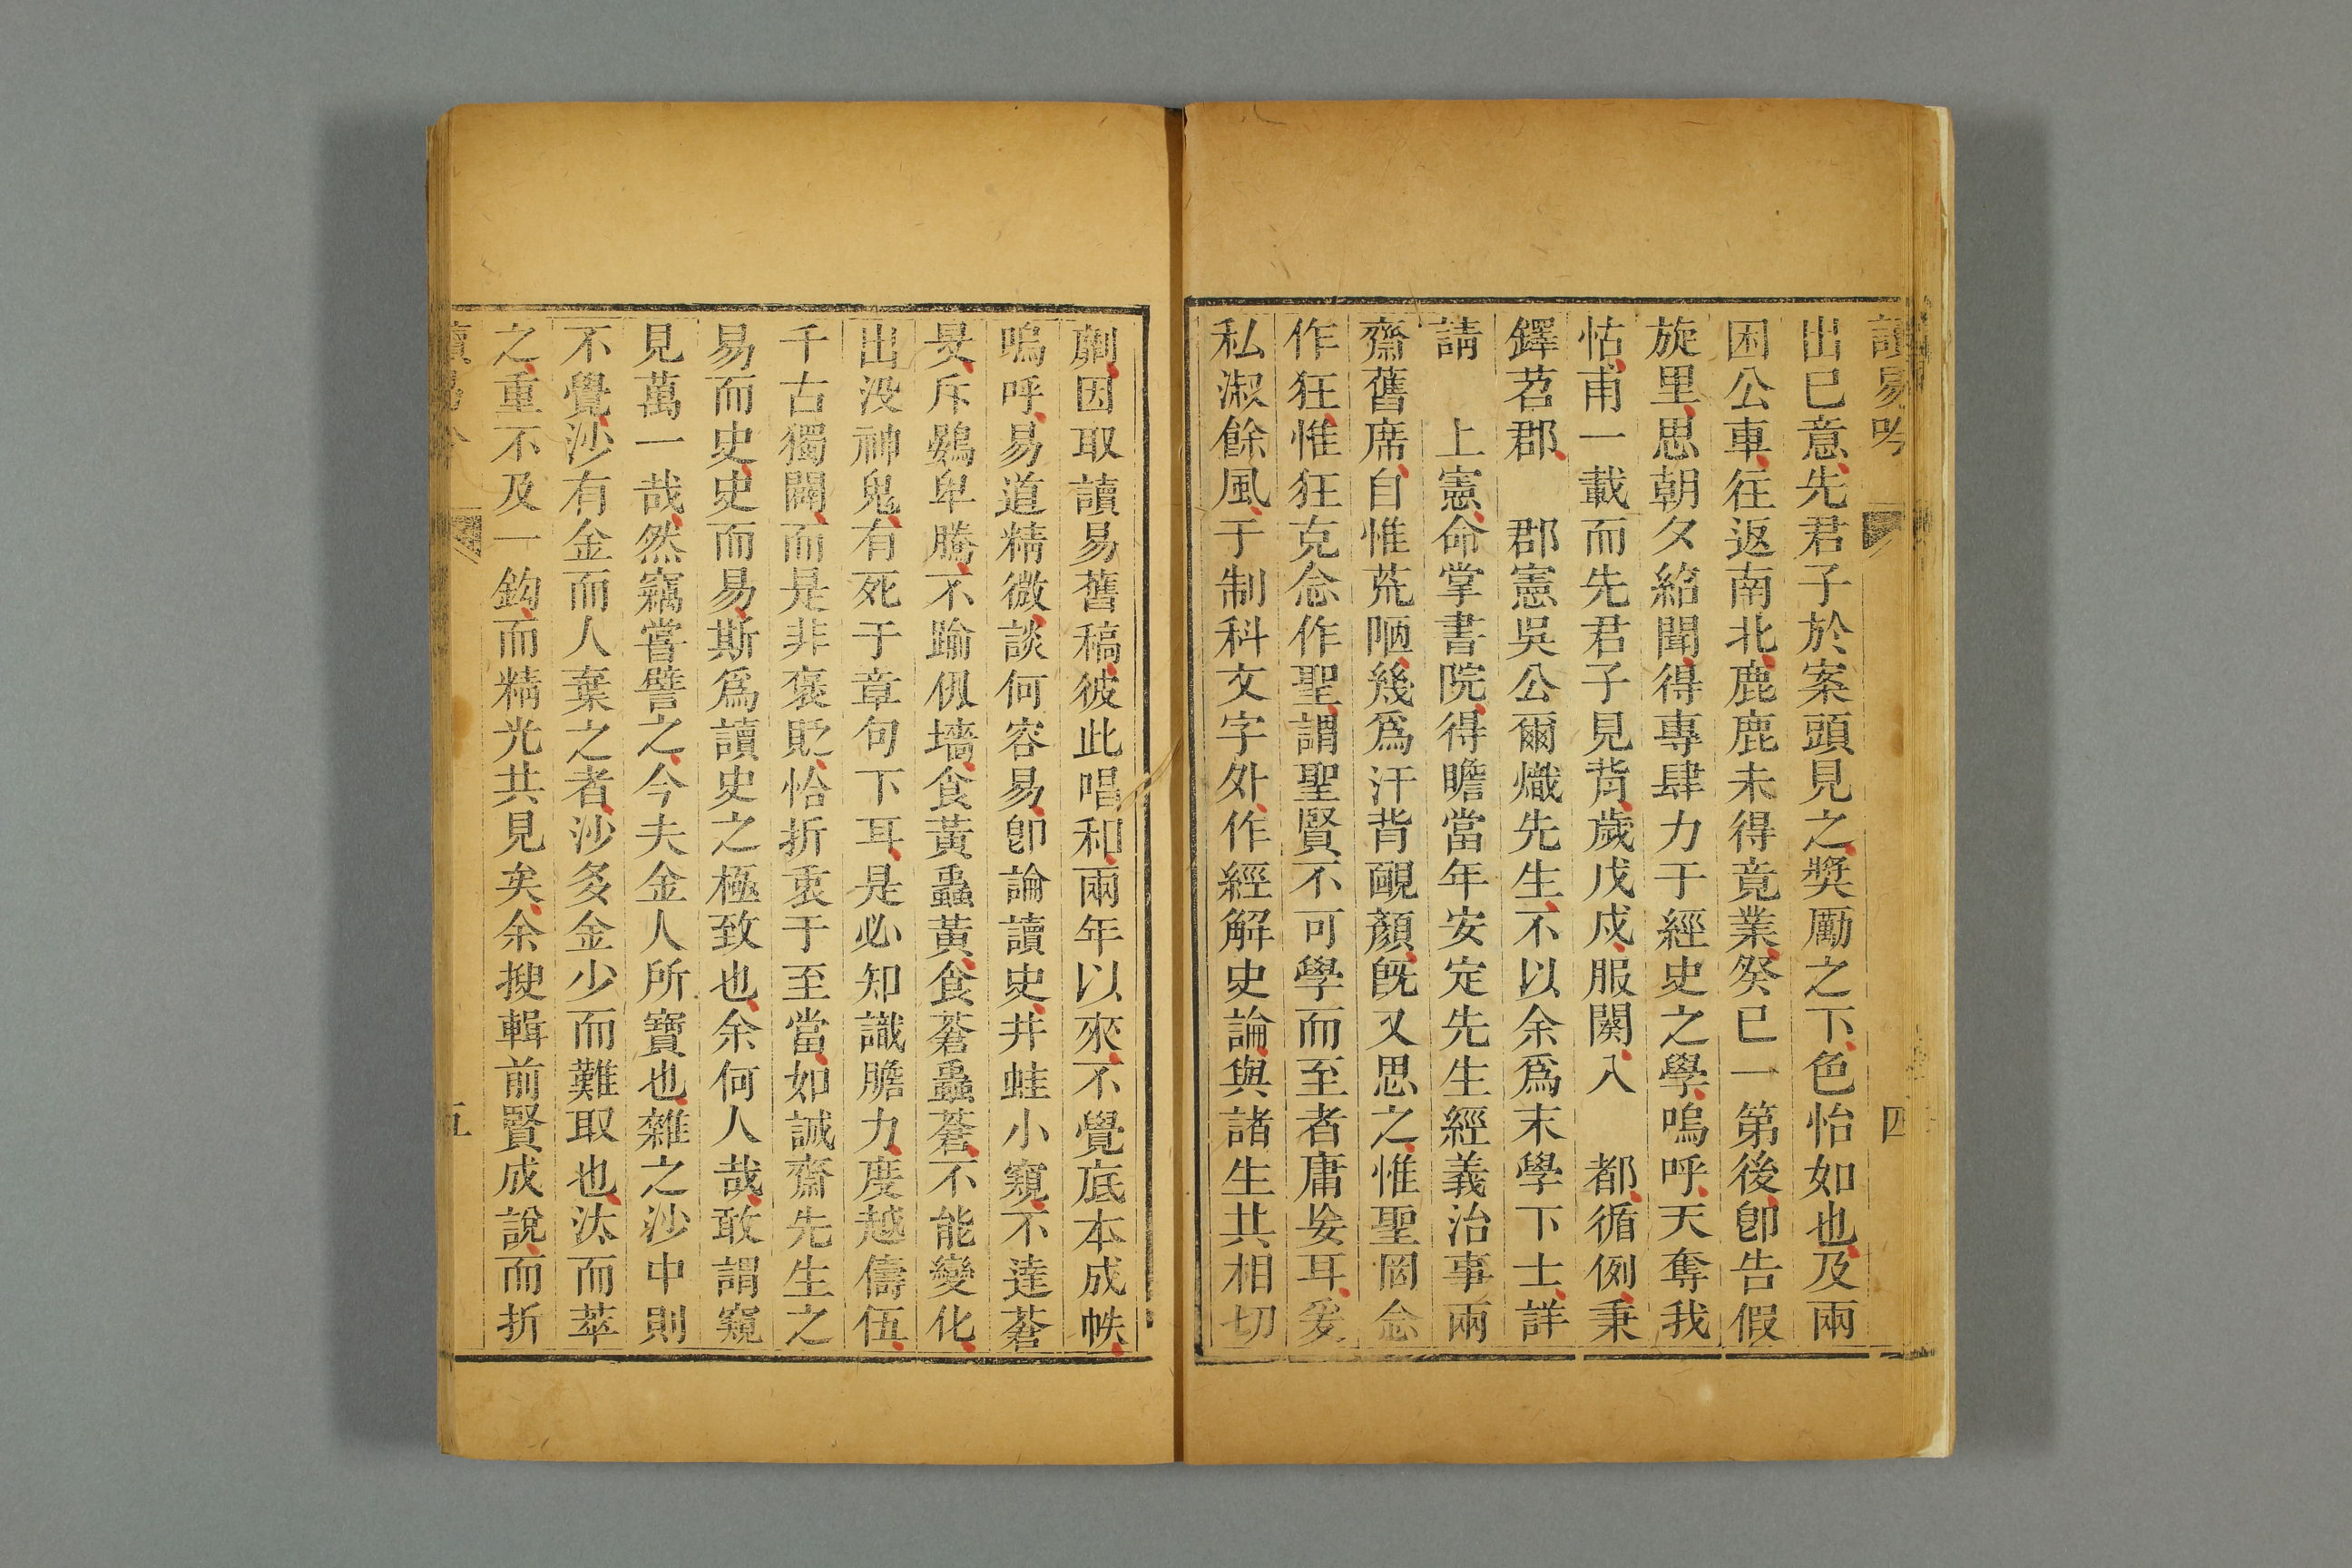 讀易吟
四
出已意先君子於案頭見之獎勵之下色怡如也及兩
困公車往返南北鹿鹿未得竟業癸巳一第後卽告假
旋里思朝夕紹聞得專肆力于經史之學嗚呼天奪我
怙甫一載而先君子見背歲戊戌服闋入 都循例秉
鐸苕郡 郡憲吳公爾熾先生不以余爲末學下士詳
請 上憲命掌書院得瞻當年安定先生經義治事兩
齋舊席自惟荒陋幾爲汗背靦顏旣又思之惟聖罔念
作狂惟狂克念作聖謂聖賢不可學而至者庸妄耳爰
私淑餘風于制科文字外作經解史論與諸生共相切
劘因取讀易舊稿彼此唱和兩年以來不覺底本成帙
嗚呼易道精微談何容易卽論讀史井蛙小窺不達蒼
旻斥鷃卑騰不踰仭墻食黃蟲黃食蒼蟲蒼不能變化
出没神鬼有死于章句下耳是必知識膽力度越儔伍
千古獨闢而是非褒貶恰折衷于至當如誠齋先生之
易而史史而易斯爲讀史之極致也余何人哉敢謂窺
見萬一哉然竊嘗譬之今夫金人所寶也雜之沙中則
不覺沙有金而人棄之者沙多金少而難取也汰而萃
之重不及一鈎而精光共見矣余搜輯前賢成說而折
五